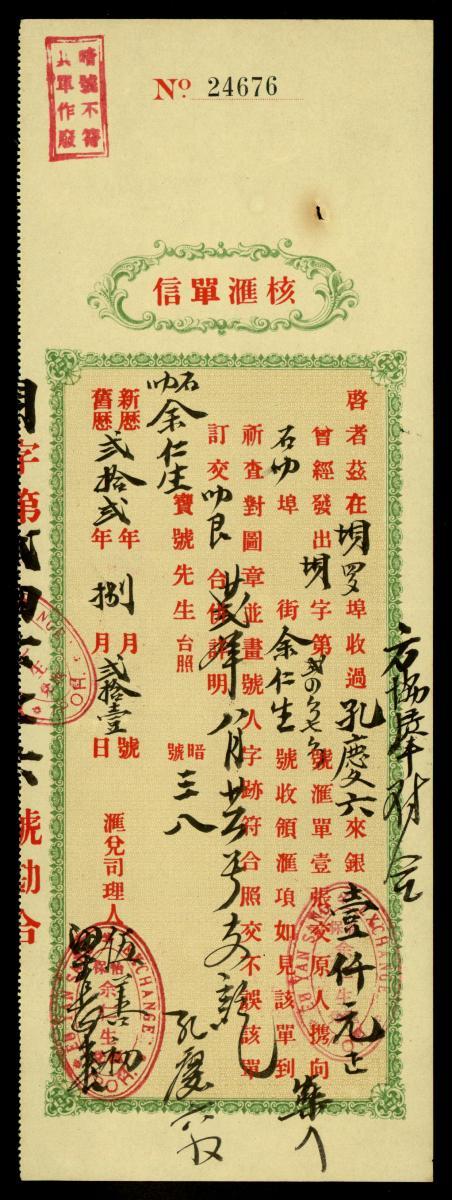 暗號不符
其單作廢
Nº 24676
核滙單信
啓者茲在埧罗埠收過孔慶六來銀壹仟元正
曾經發出埧字第貳四六七六號滙單壹張交原人携向
石叻埠 街余仁生號收領滙項如見該單到
祈查對圖章並畫號人字跡符合照交不誤該單
訂交叻艮 台併詳明
石叻余仁生寶號先生台照
暗號 三八
新歷 年 月 號
舊歷貳拾貳年捌月貳拾壹日
滙兌司理人伍善初
孔慶六
EU YAN SANG EXCHANGE
余仁生
IPOH
字第貳四六七六號勘合